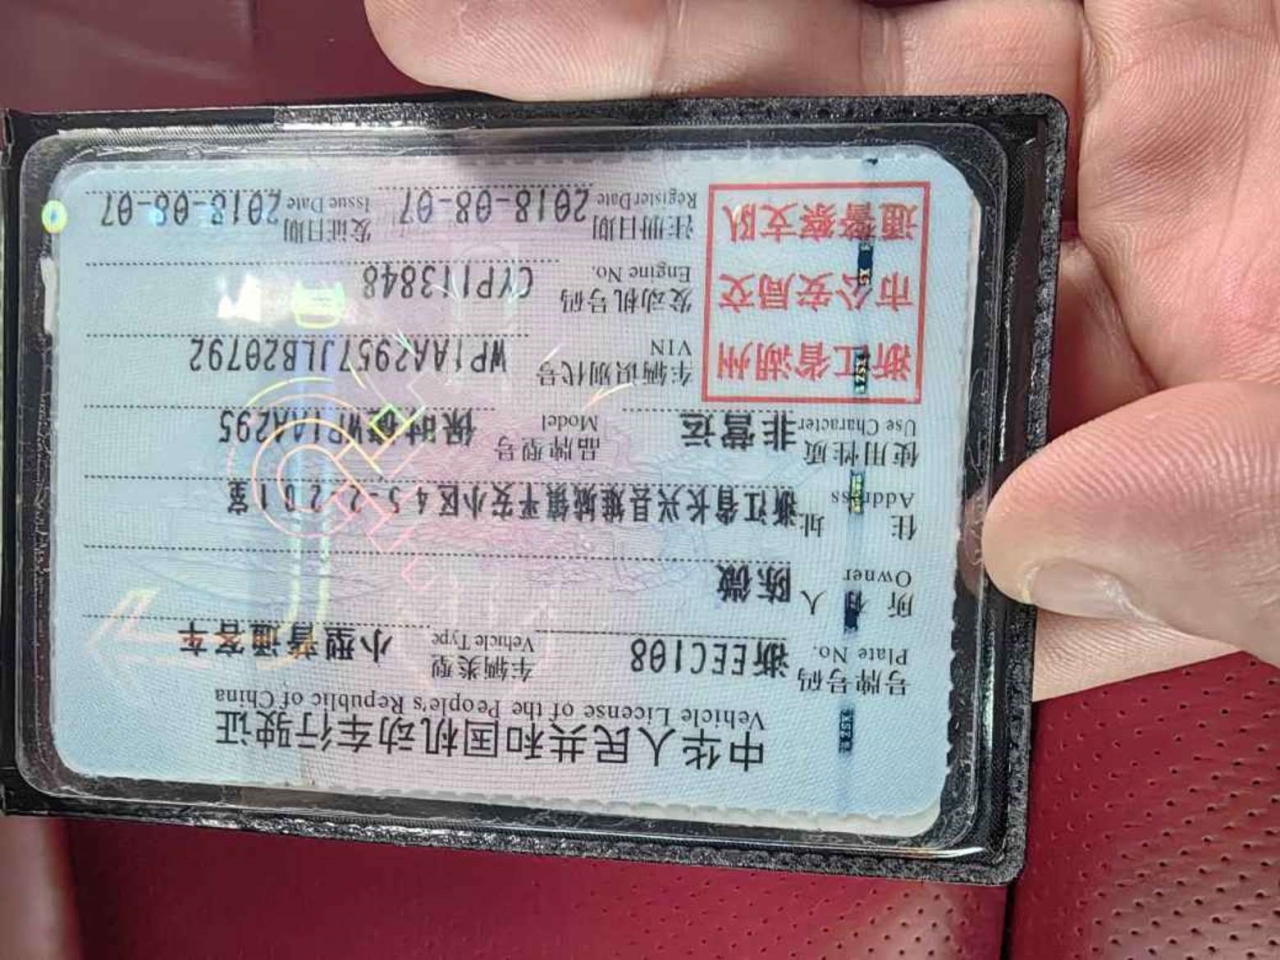 中华人民共和国机动车行驶证
Vehicle License of the People's Republic of China
号牌号码 浙EEC108 车辆类型 小型普通客车
Plate No. Vehicle Type
所有人 陈微
Owner
住址 浙江省长兴县雉城镇平安小区45-2-201室
Address
使用性质 非营运 品牌型号 保时捷WP1AA295
Use Character Model
浙江省湖州
市公安局交
通警察支队
车辆识别代号 WP1AA2957JLB20792
VIN
发动机号码 CYP113848
Engine No.
注册日期 2018-08-07 发证日期 2018-08-07
Register Date Issue Date